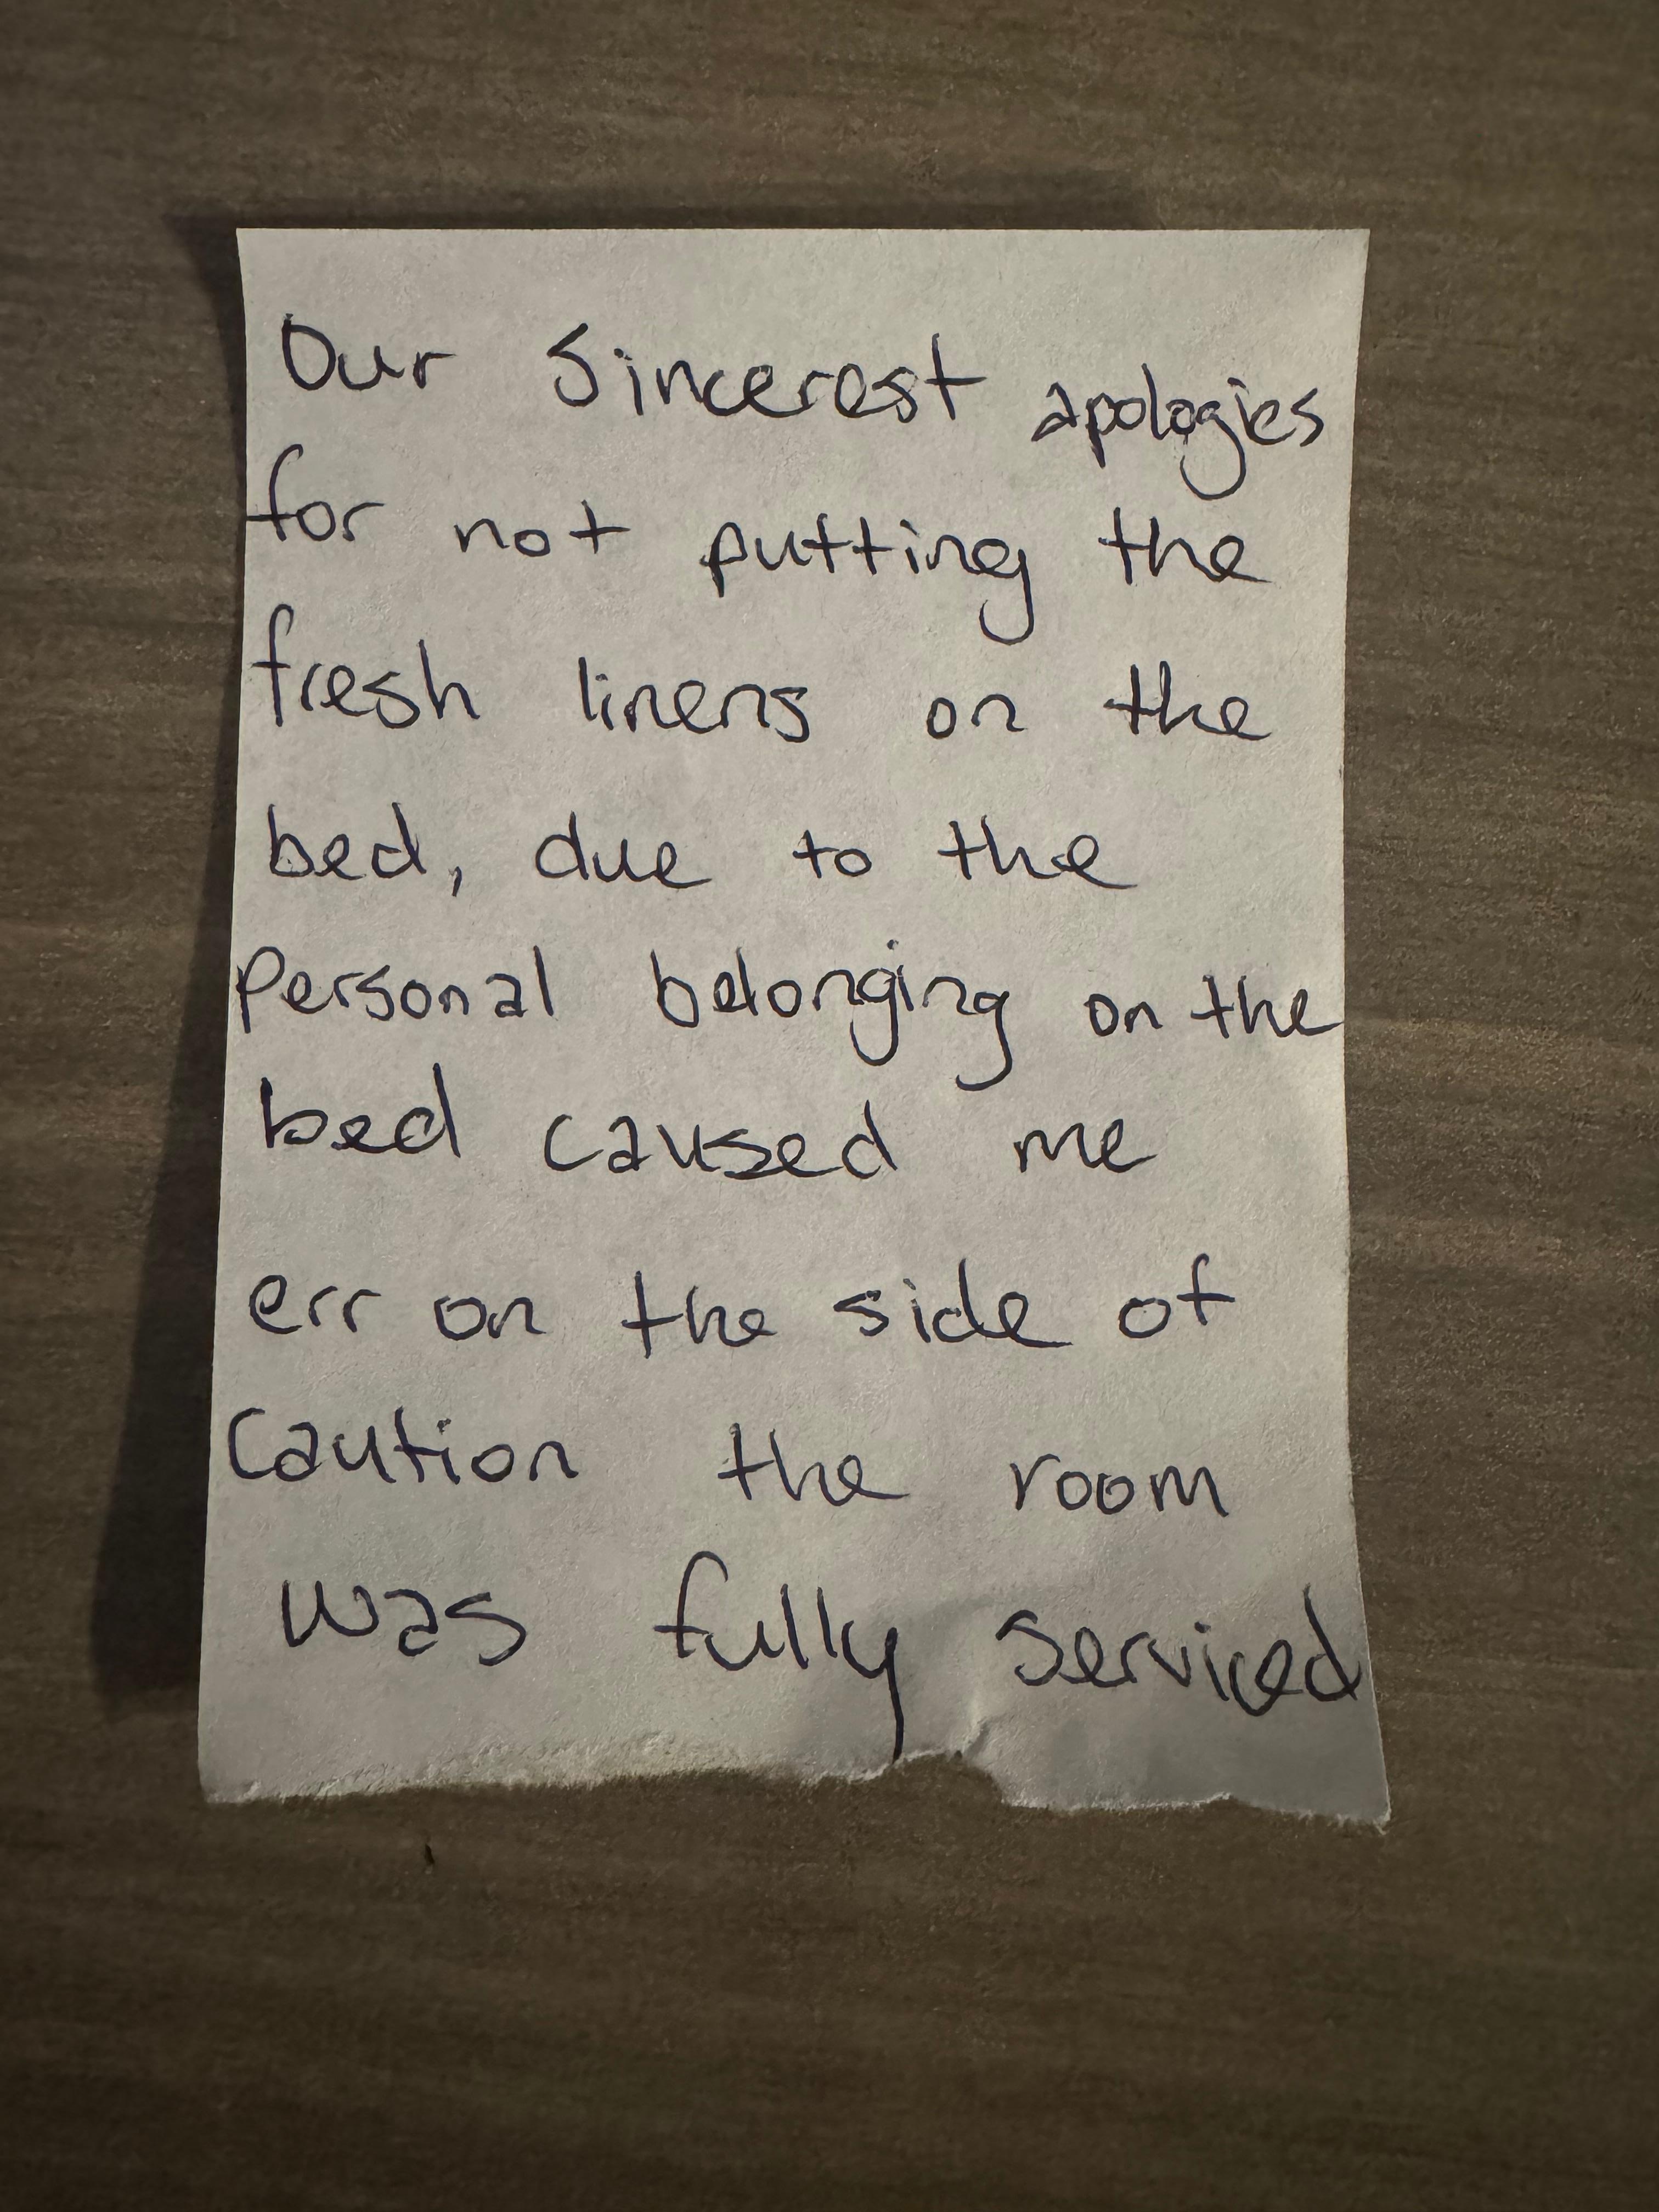 Our Sincerest apologies
for not putting the
fresh linens on the
bed, due to the
Personal belonging on the
bed caused me
err on the side of
Caution the room
was fully serviced